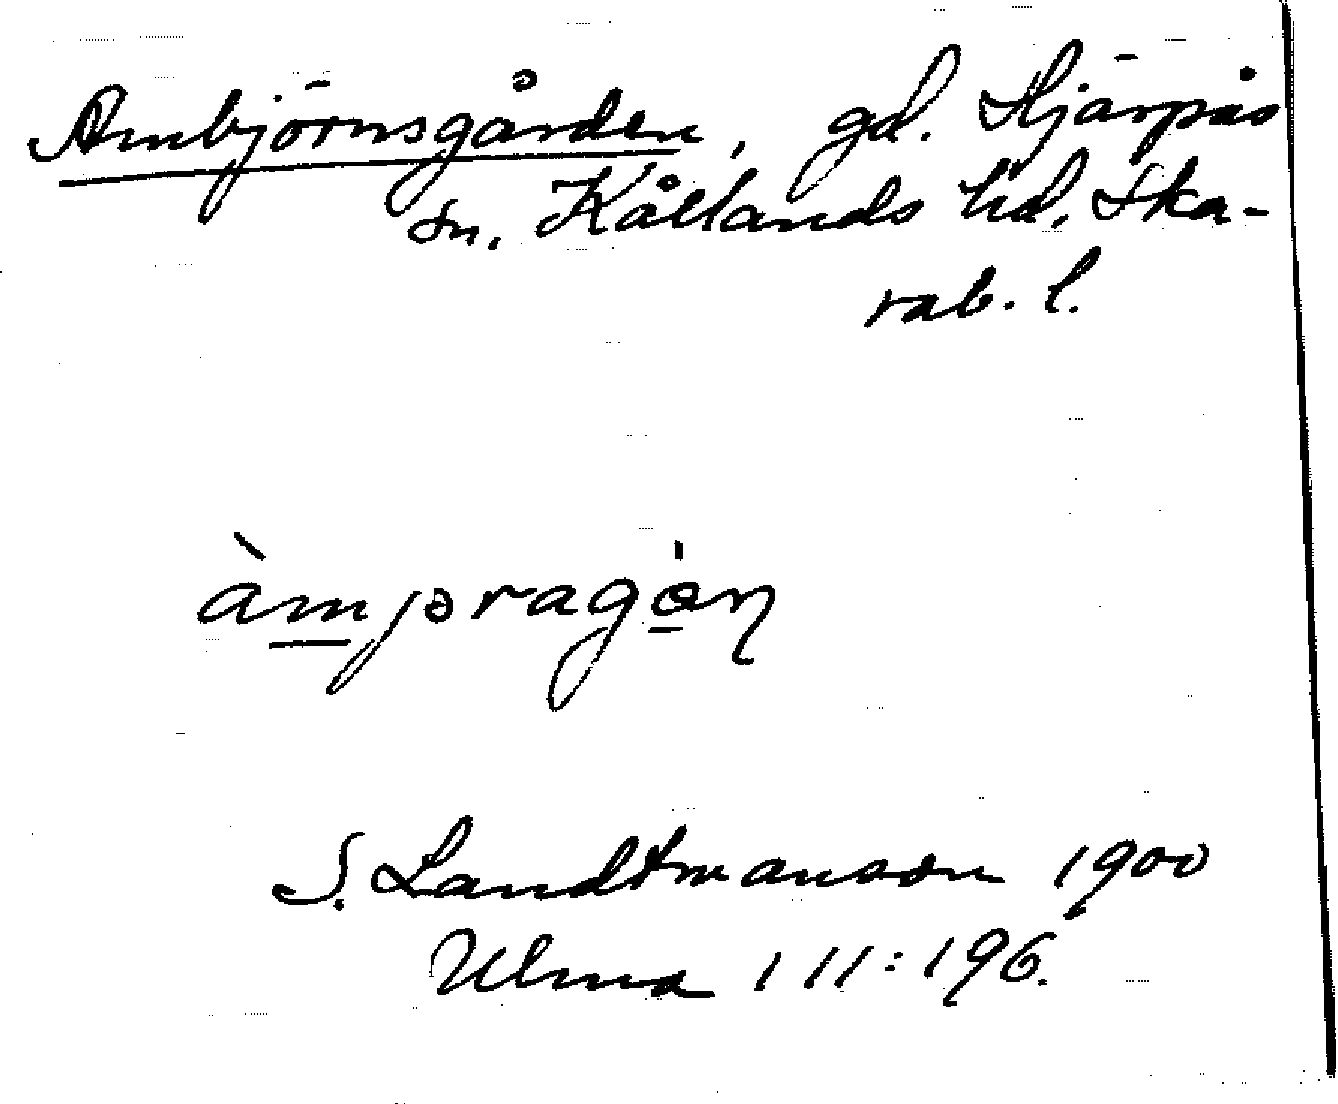 Ambjörnsgården, gd. Hjärpås
sn. Kållands hd, Ska-
rab. l.
àmjəragɵ̀n
S. Landtmanson 1900
Ulma 111:196.